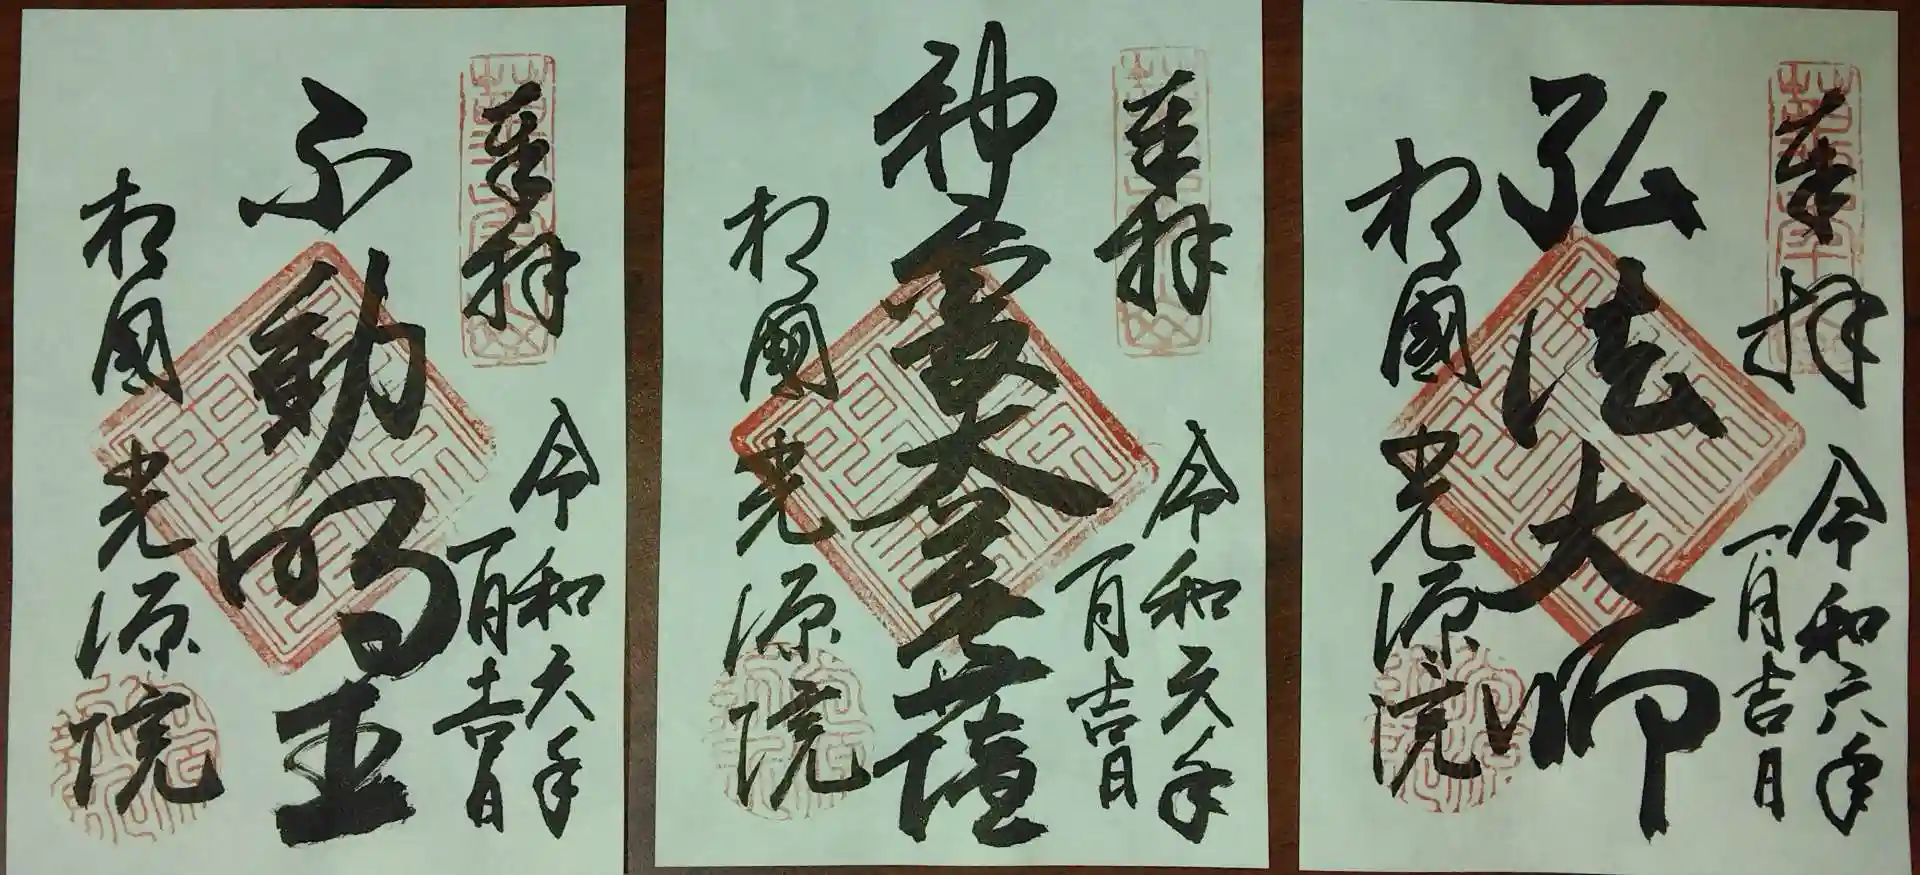 奉拝
令和六年
一月吉日
不動明王
相國 光源院
奉拝
令和六年
一月吉日
神変大菩薩
相國 光源院
奉拝
令和六年
一月吉日
弘法大師
相國 光源院